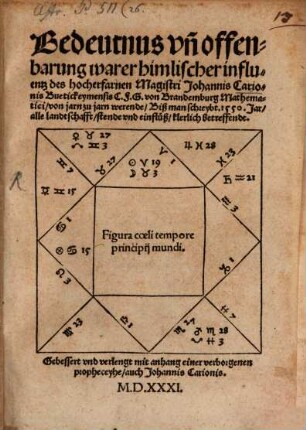 Astr. P. 511 (26.
Bedeutnus vñ offen-
barung warer himlischer influ-
entz des hocherfarnen Magistri Johannis Cario-
nis Buetickeymensis C.F.G. von Brandenburg Mathema-
tici/von jarn zu jarn werende/Biß man schreybt.1550.Jar/
alle landtschafft/stende vnd einflüß/klerlich betreffende.
♀ ♉ 27
☊ ♒ 3
☉ ♈ 19
☽ ♉ 3
♈ 1
♃ ♓ 28
♓ 23
♄ ♒ 21
♑ 1
♐ 7
♏ 27
♂ ♏ 28
☋ ♎ 3
♎ 1
♍ 23
♌ 3
⊗ ♋ 15
♋ 1
☿ ♊ 15
♊ 7
♉ 27
Figura cœli tempore
principij mundi.
Gebessert vnd verlengt mit anhang einer verborgenen
propheceyhe/auch Johannis Carionis.
M.D.XXXI.